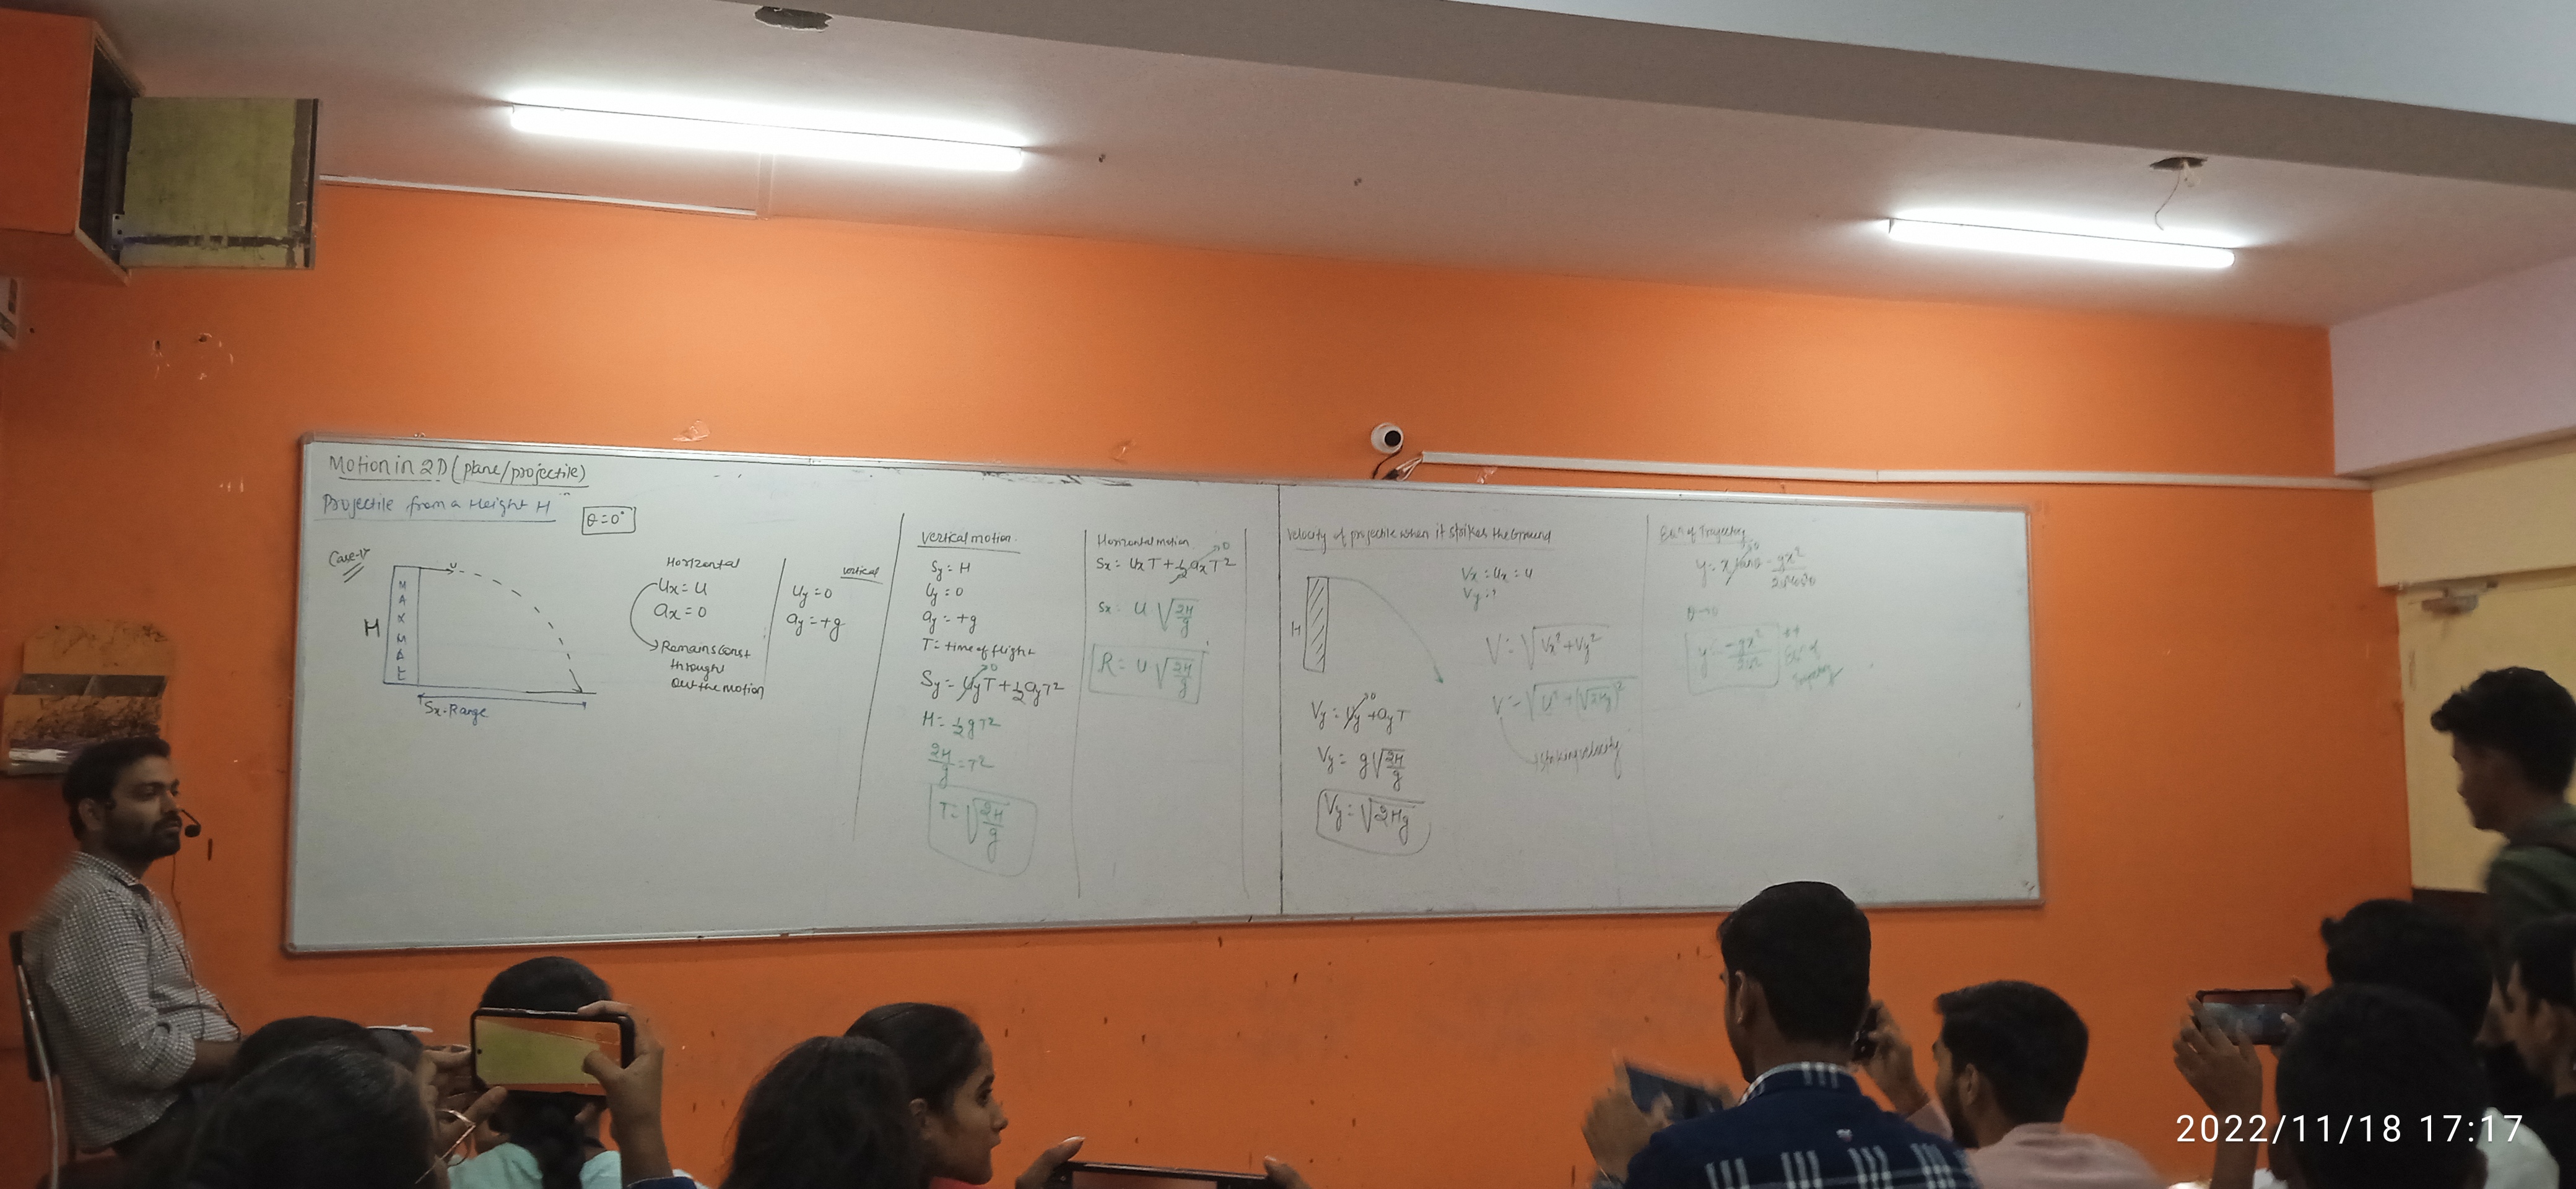 Motion in 2D (plane/projectile)
Projectile from a Height H
θ = 0°
Case-V
u
H
Sx-Range
Horizontal
Ux = U
ax = 0
Remains const
through
out the motion
vertical
Uy = 0
ay = +g
Vertical motion
Sy = H
Uy = 0
ay = +g
T = time of flight
Sy = UyT + 1/2 ayT²
0
H = 1/2 gT²
2H/g = T²
T = √(2H/g)
Horizontal motion
Sx = UxT + 1/2 axT²
0
Sx = U √(2H/g)
R = U √(2H/g)
Velocity of projectile when it strikes the Ground
H
Vx = Ux = U
Vy = ?
V = √(Vx² + Vy²)
V = √(U² + (√2Hg)²)
Vy = Uy + ayT
0
Vy = g √(2H/g)
Vy = √2Hg
Eqn of Trajectory
y = x tanθ - gx²/2u²cos²θ
y = -gx²/2u²
2022/11/18 17:17